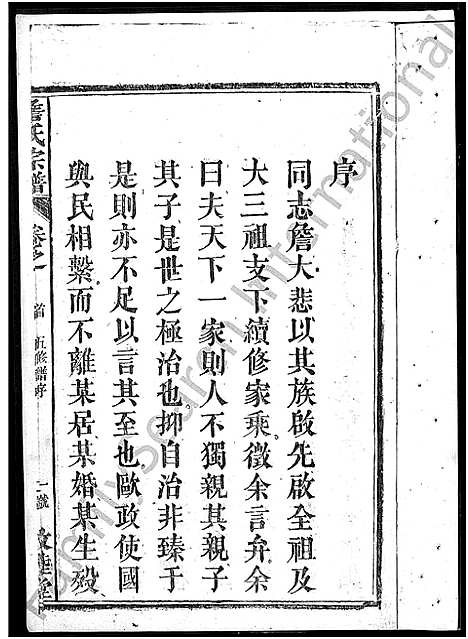 序
同志詹大悲以其族啟先啟全祖及
大三祖支下續修家乘徵余言弁余
曰夫天下一家則人不獨親其親子
其子是世之極治也抑自治非臻于
是則亦不足以言其至也歐政使國
與民相繫而不離某居某婚某生殁
詹氏宗譜
卷之一
首 五修譜序
一號
FamilySearch International